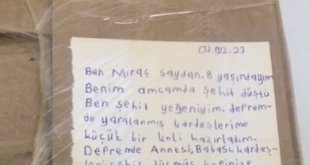 07.02.23
Ben Miraç saydan. 8 yaşındayım
Benim amcamda şehit düştü
Ben şehit yeğeniyim. deprem-
de yaralanmış kardeşlerime
küçük bir koli hazırladım.
Depremde Annesi, Babası, kardeş-